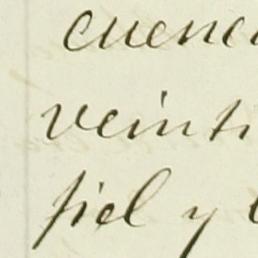 cuenc
veinti
fiel y